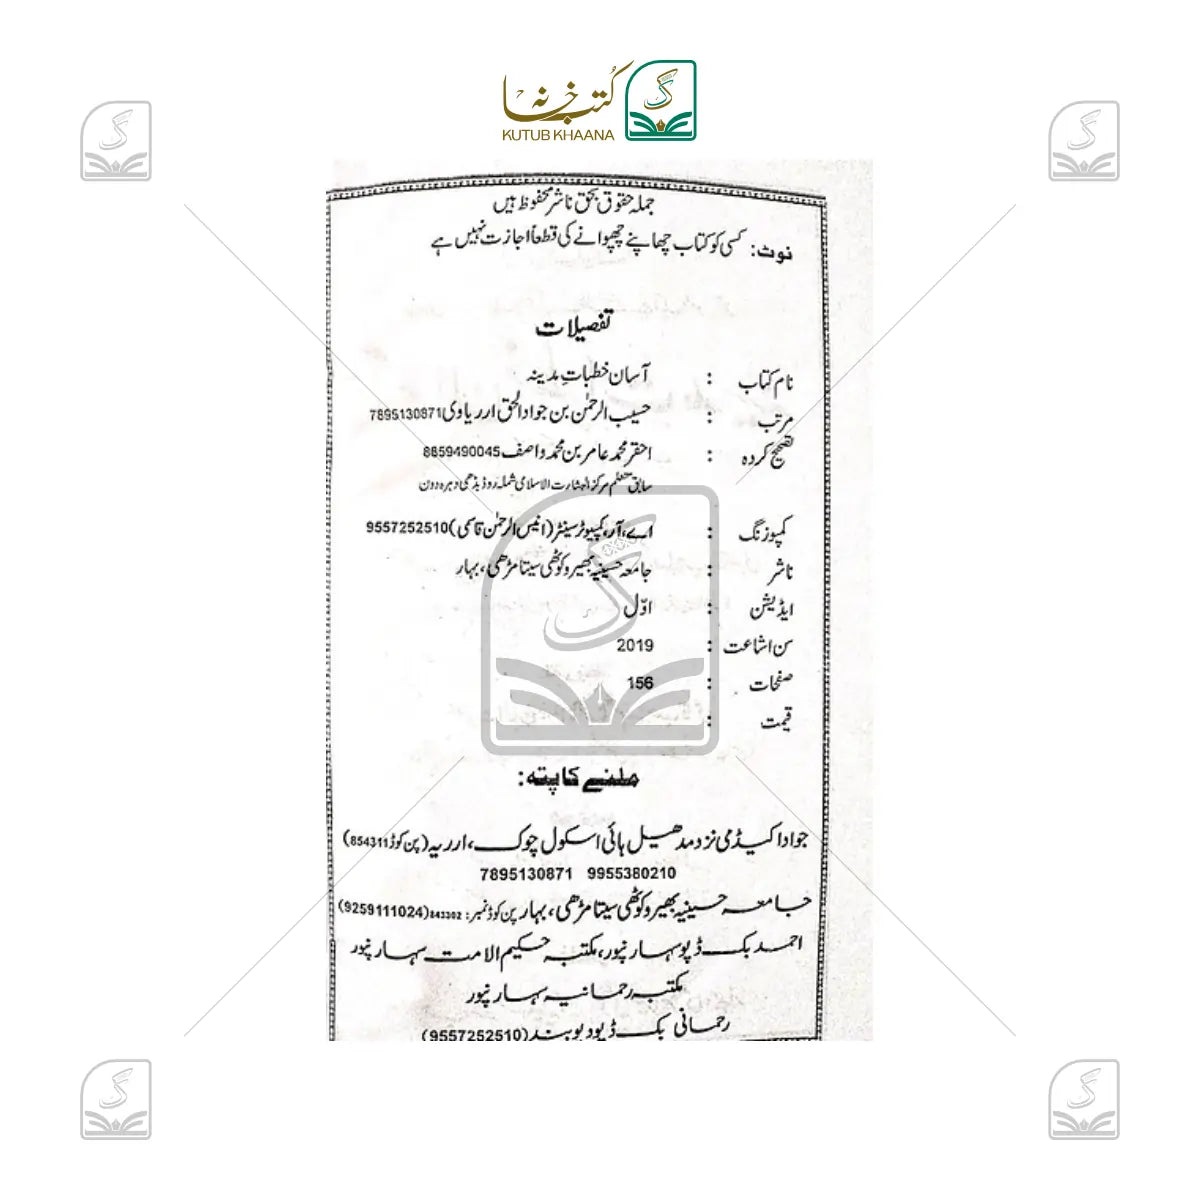 کتب خانہ
KUTUB KHAANA
جملہ حقوق بحق ناشر محفوظ ہیں
نوٹ: کسی کو کتاب چھاپنے چھپوانے کی قطعاً اجازت نہیں ہے
تفصیلات
نام کتاب : آسان خطباتِ مدینہ
مرتب : حسیب الرحمٰن بن جواد الحق ارریاوی 7895130871
تصحیح کردہ : احقر محمد عامر بن محمد واصف 8859490045
سابق متعلم مرکز البشارت الاسلامی شملہ روڈ بڈھی دہرہ دون
کمپوزنگ : اے، آر، کمپیوٹر سینٹر (انیس الرحمٰن قاسمی) 9557252510
ناشر : جامعہ حسینیہ بھیروکوٹھی سیتامڑھی، بہار
ایڈیشن : اوّل
سن اشاعت : 2019
صفحات : 156
قیمت :
ملنے کا پتہ:
جواد اکیڈمی نزد مدھیل ہائی اسکول چوک، ارریہ (پن کوڈ 854311)
7895130871 9955380210
جامعہ حسینیہ بھیروکوٹھی سیتامڑھی، بہار پن کوڈ نمبر: 843302 (9259111024)
احمد بک ڈپو سہارنپور، مکتبہ حکیم الامت سہارنپور
مکتبہ رحمانیہ سہارنپور
رحمانی بک ڈپو دیوبند (9557252510)